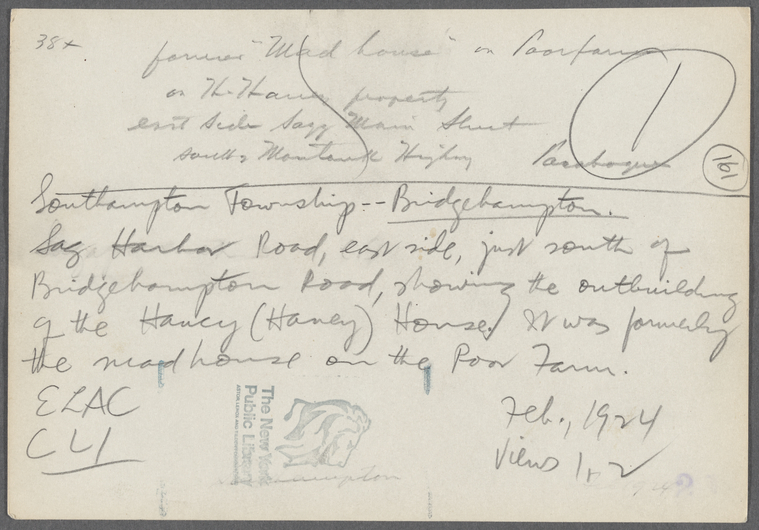 38+
former "Mad house" on Poorfarm
on the Haney property
east side Sagg Main Street
south of Montauk Highway
1
161
Southampton Township -- Bridgehampton.
Sag Harbor Road, east side, just south of
Bridgehampton Road, showing the outbuilding
of the Hancy (Haney) House. It was formerly
the madhouse on the Poor Farm.
ELAC
CLI
Feb., 1924
Views 1, 2
The New York
Public Library